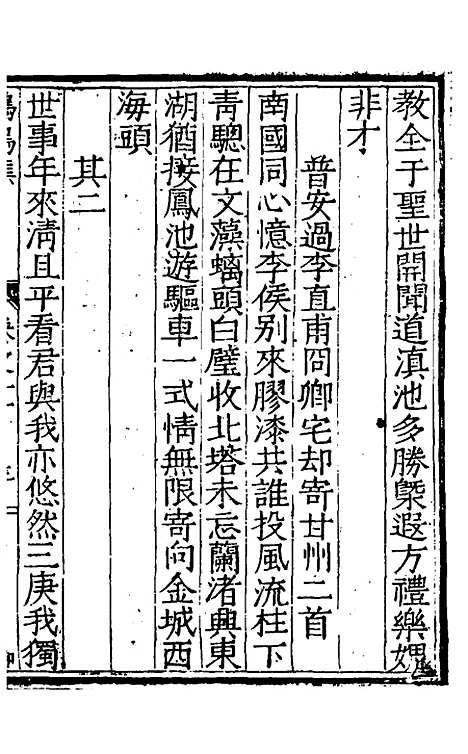 教全于聖世開聞道滇池多勝槩遐方禮樂媿
非才
普安過李直甫冏卿宅却寄甘州二首
南國同心憶李侯别來膠漆共誰投風流柱下
青驄在文藻螭頭白璧收北塔未忘蘭渚興東
湖猶接鳳池遊驅車一弍情無限寄向金城西
海頭
其二
世事年來淸且平看君與我亦悠然三庚我獨